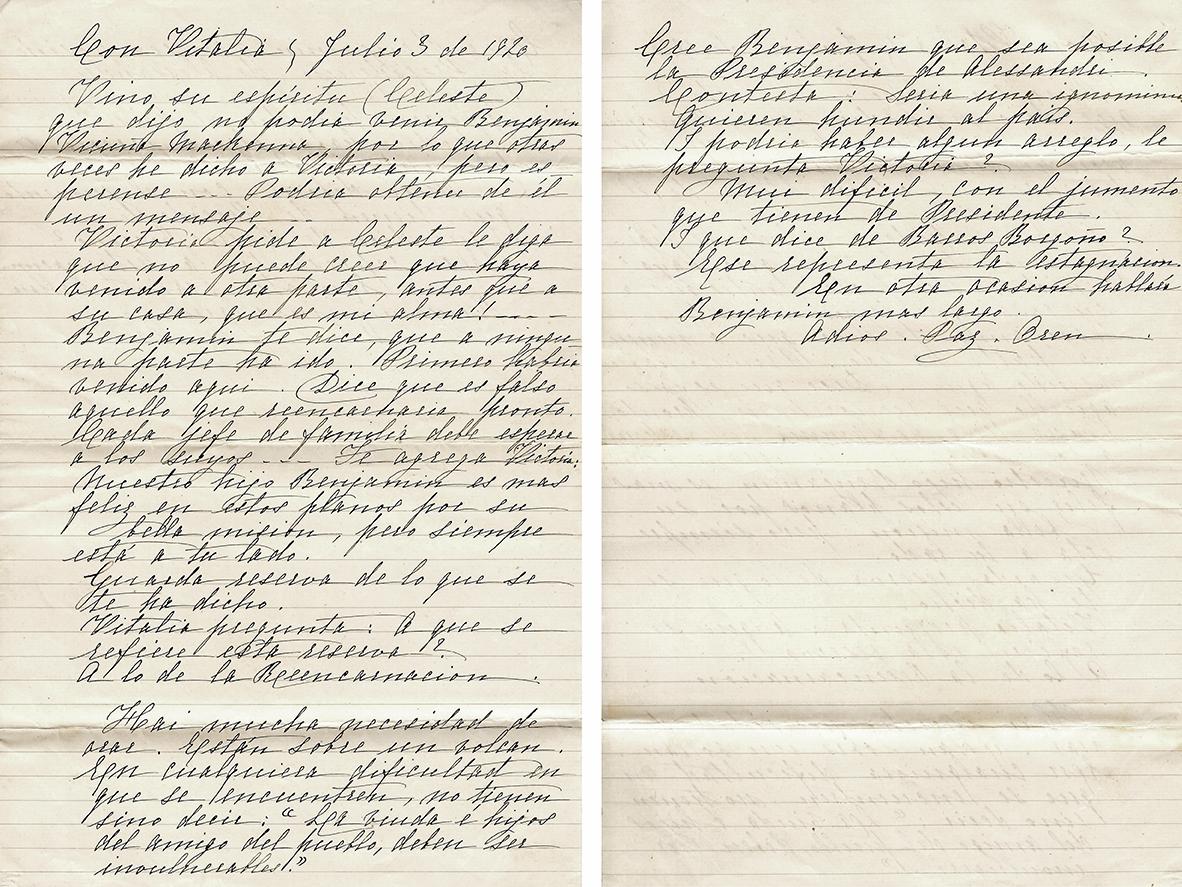 Con Vitalia y Julio 3 de 1920
Vino su espíritu (Celeste)
que dijo no podia venir Benjamin
Vicuña Mackenna, por lo que otras
veces he dicho a Victoria, pero es
perense --- Podria obtener de él
un mensaje ---
Victoria pide a Celeste le diga
que no puede creer que haya
venido a otra parte, antes que a
su casa, que es mi alma! ----
Benjamin te dice, que a ningu
na parte ha ido. Primero habria
venido aqui. Dice que es falso
aquello que reencarnaria pronto.
Cada jefe de familia debe esperar
a los suyos --- Te agrega Victoria:
Nuestro hijo Benjamin es mas
feliz en estos planos por su
bella mision, pero siempre
está a tu lado.
Guarda reserva de lo que se
te ha dicho.
Vitalia pregunta: A que se
refiere esta reserva?
A lo de la Reencarnacion.
Hai mucha necesidad de
orar. Están sobre un volcan.
En cualquiera dificultad en
que se encuentren, no tienen
sino decir: "La viuda é hijos
del amigo del pueblo, deben ser
invulnerables."
Cree Benjamin que sea posible
la Presidencia de Alessandri.
Contesta: Seria una ignominia
Quieren hundir al país.
I podria haber algun arreglo, le
pregunta Victoria?
Mui dificil, con el jumento
que tienen de Presidente.
I que dice de Barros Borgoño?
Ese representa la estagnacion.
En otra ocasion hablará
Benjamin mas largo.
Adios. Paz. Oren